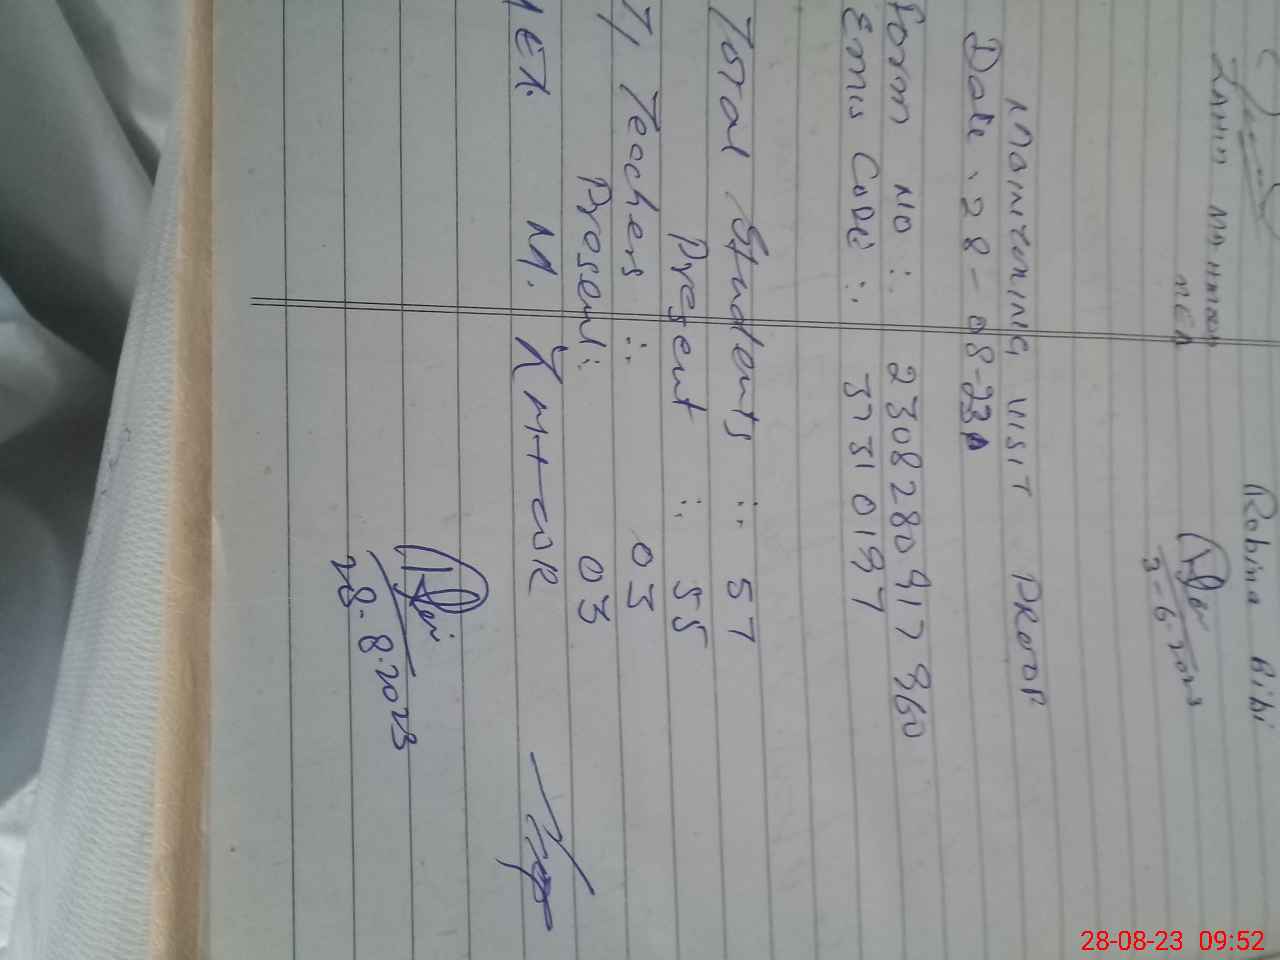 Robina Bibi
3-6-2023
MONITORING VISIT PROOF
Date: 28-08-23
Form No: 230828091 360
Emis Code: 37310197
Total Students: 57
Present: 55
T, Teachers: 03
Present: 03
M.
28.8.2023
28-08-23 09:52